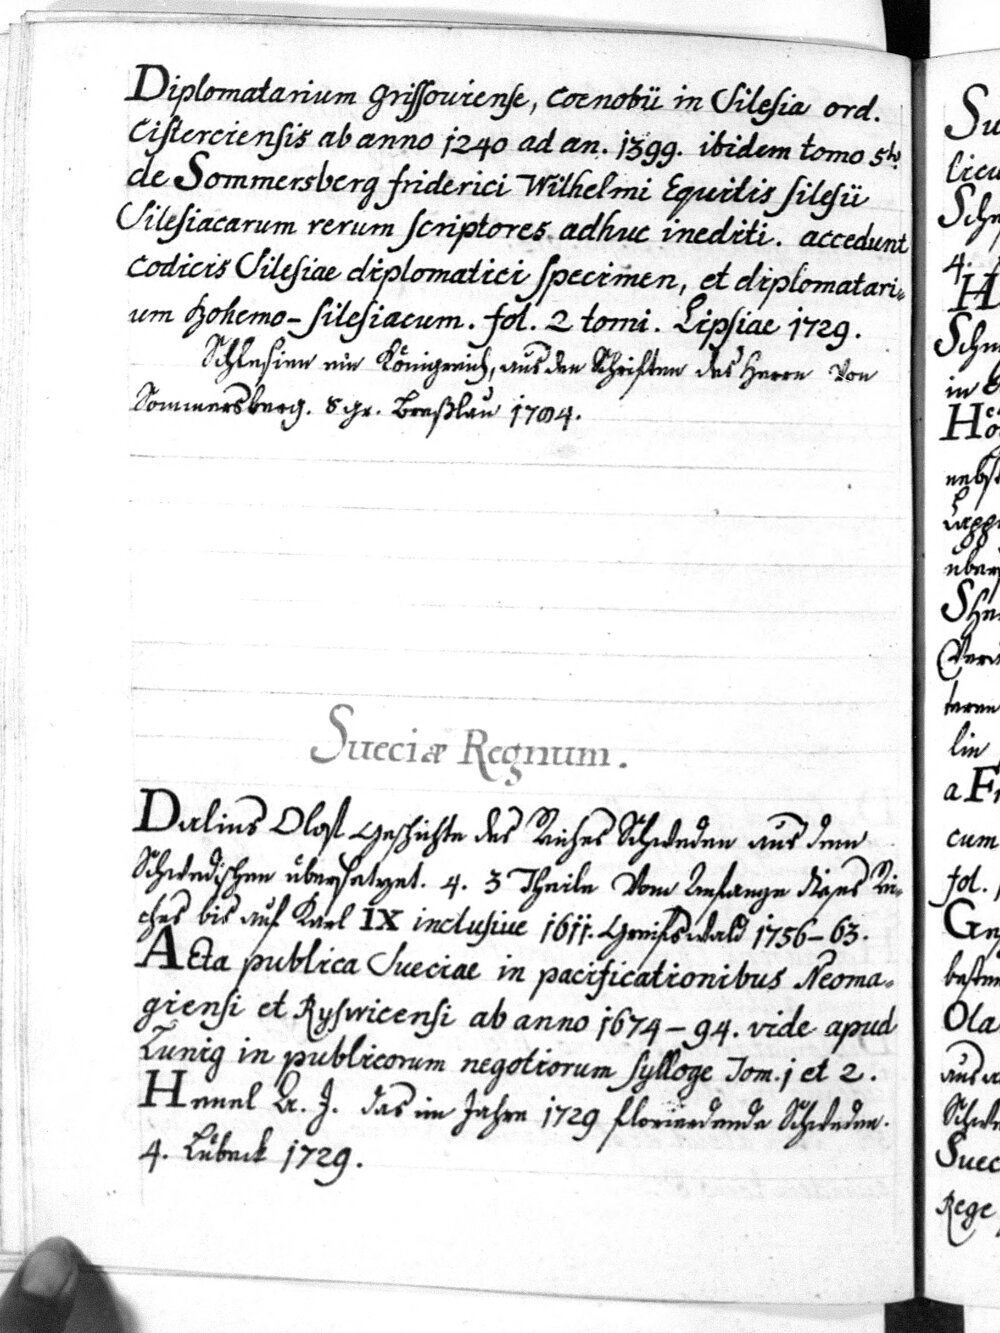 Diplomatarium Grissoviense, Coenobii in Silesia ord.
Cisterciensis ab anno 1240 ad an. 1399. ibidem tomo 5to.
de Sommersberg friderici Wilhelmi Equitis silesii
Silesiacarum rerum scriptores adhuc inediti. accedunt
Codicis Silesiae diplomatici specimen, et diplomatari-
um Bohemo-silesiacum. fol. 2 tomi. Lipsiae 1729.
Schlesien ein Königreich, aus den Schriften des Herrn Von
Sommersberg. 8 gr. Breßlau
Sueciæ Regnum.
Dalins Olof Geschichte des Reiches Schweden aus dem
Schwedischen übersetzet. 4. 3 Theile Vom Anfange dieses Rei-
ches bis auf Karl IX inclusive 1611. Greifswald 1756-63.
Acta publica Sueciae in pacificationibus Neoma-
giensi et Ryswicensi ab anno 1674-94. vide apud
Lunig in publicorum negotiorum sylloge Tom. 1 et 2.
Henel das im Jahre 1729 florierdende Schweden.
4. Lübeck 1729.
Su
Schn
4.
H
Schn
in
H
nebst
über
She
lin
a Fr
cum
fol.
Ge
Ola
aus
Schwe
Suec
Rege